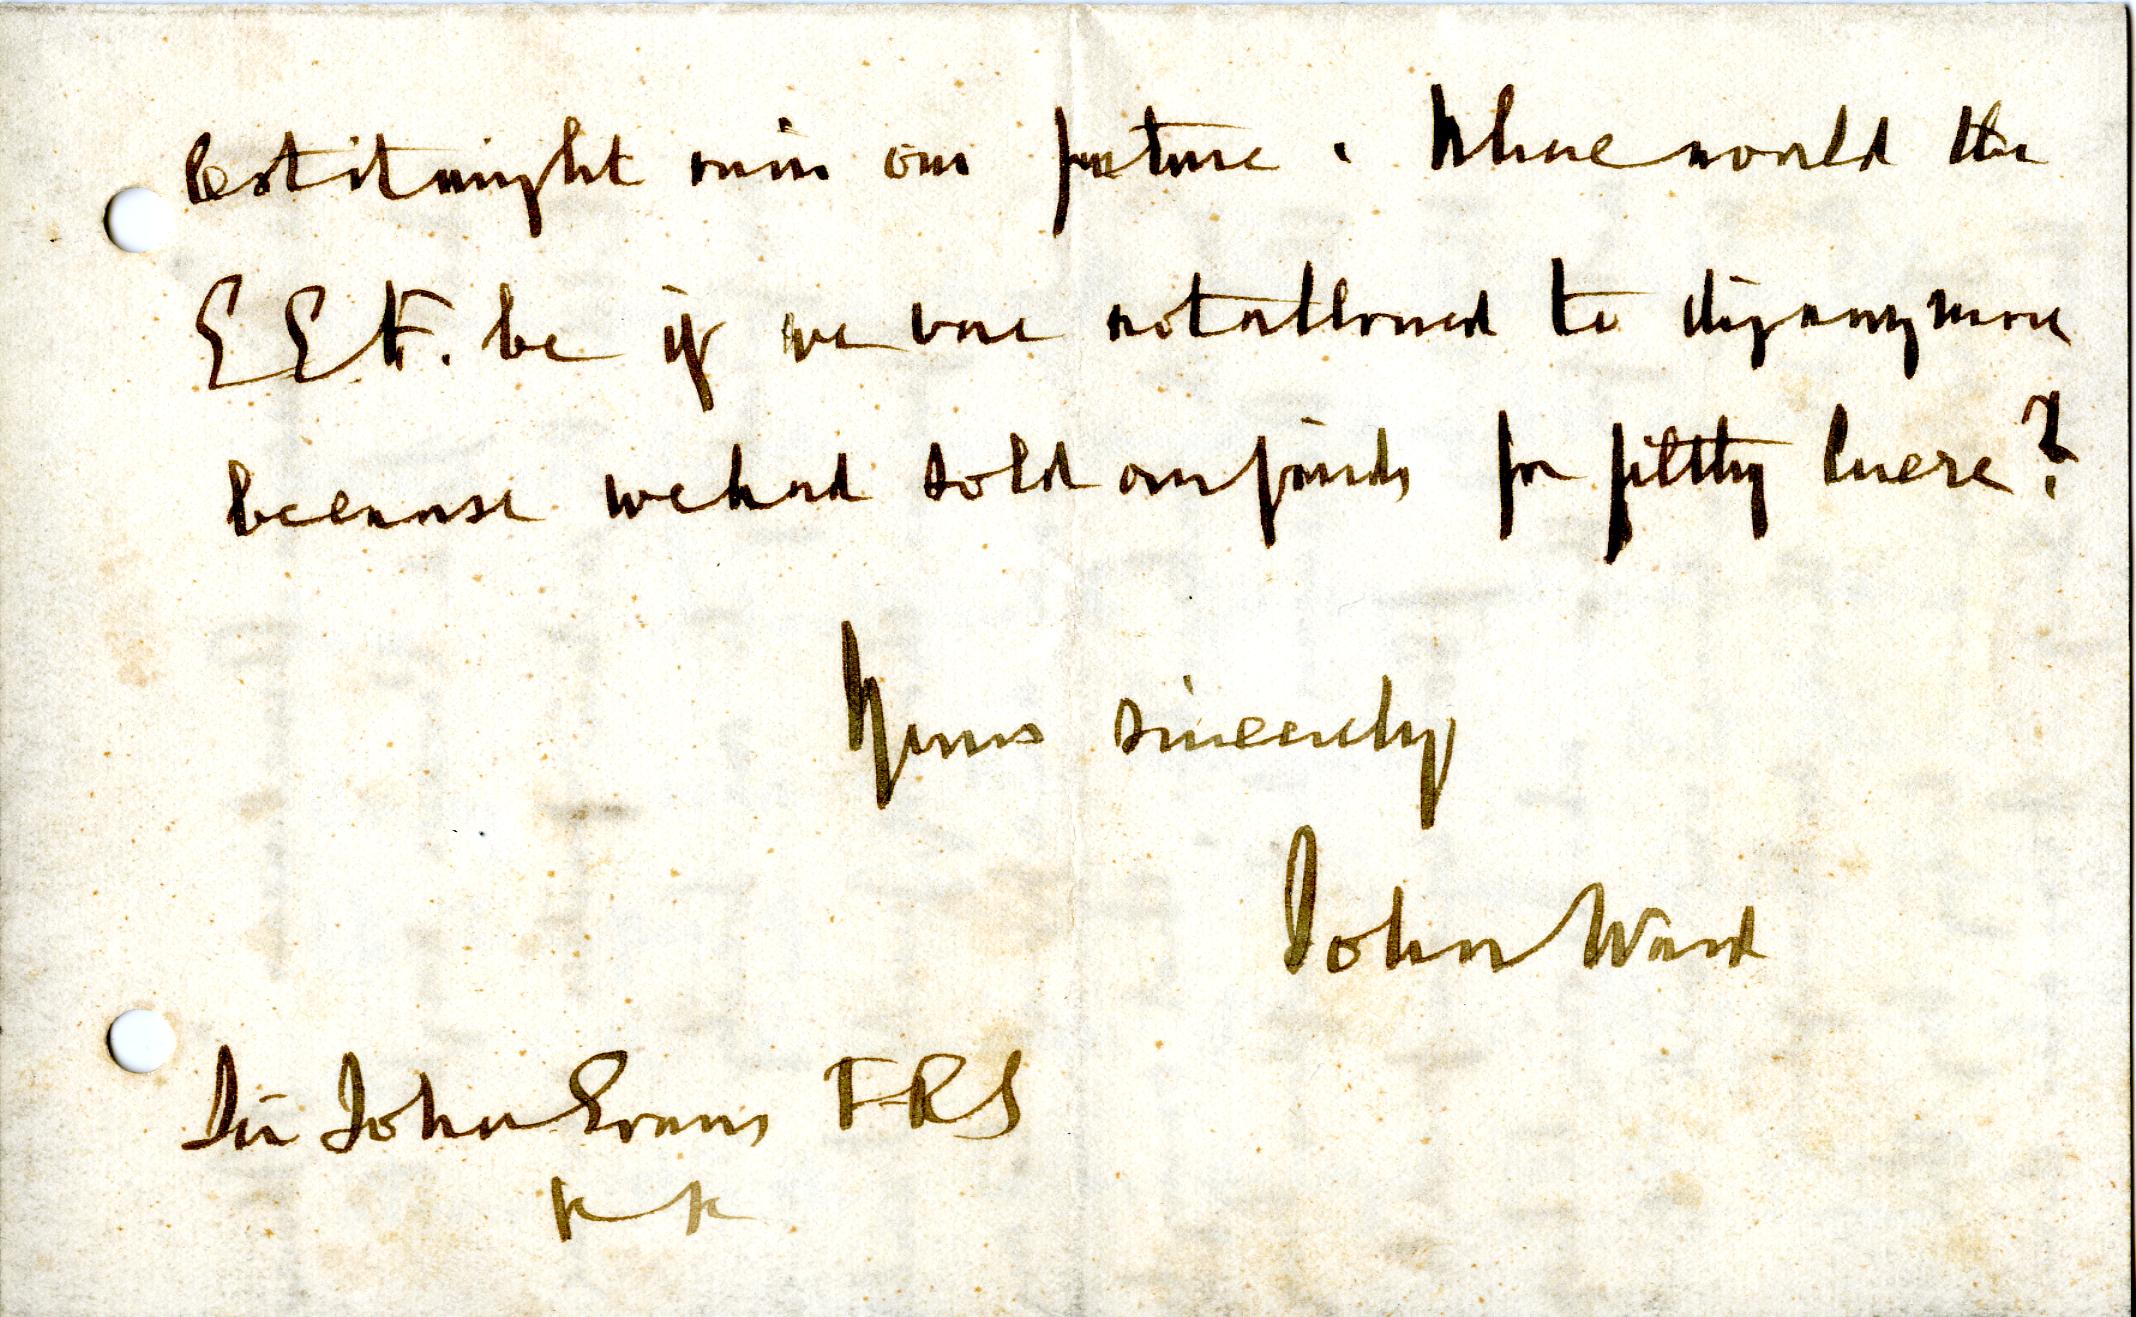 lest it might ruin our future. Where would the
E E F. be if we were not allowed to dig any more
because we had sold our finds for filthy lucre?
Yours sincerely
John Ward
Sir John Evans FRS